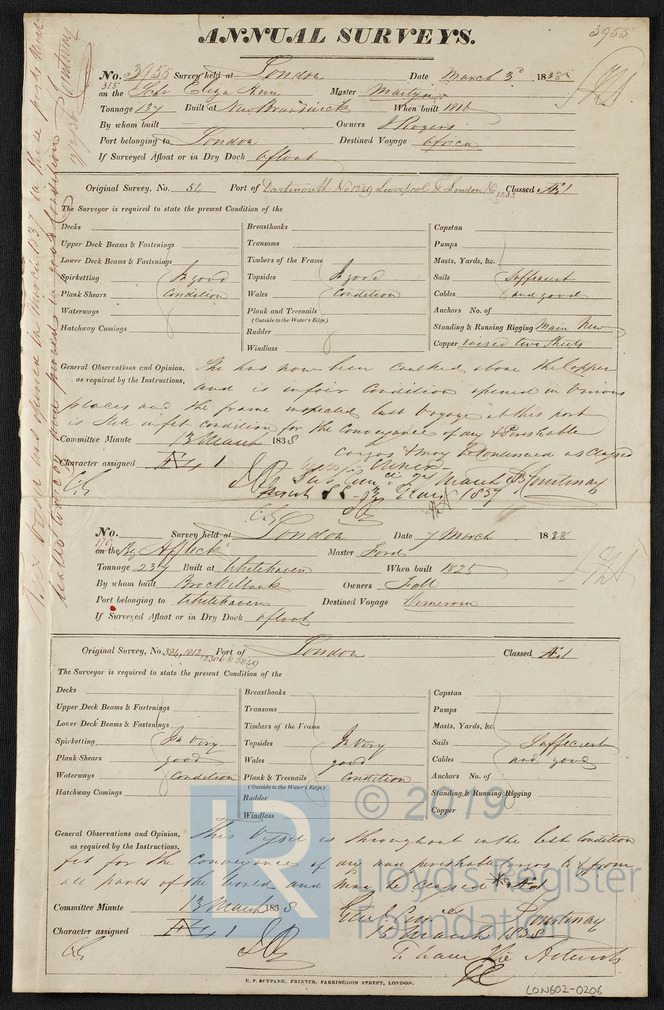 ANNUAL SURVEYS.
3955
No. 3955 Survey held at London Date March 3d 1838
315
on the Eliza Ann Master Martyn
Tonnage 137 Built at New Brunswick When built 1816
By whom built Owners J Rogers
Port belonging to London Destined Voyage Africa
If Surveyed Afloat or in Dry Dock afloat
Original Survey, No. 34 Port of Dartmouth No 1249 Liverpool & London No 1232 Classed Æ 1
The Surveyor is required to state the present Condition of the
Decks
Upper Deck Beams & Fastenings
Lower Deck Beams & Fastenings
Spirketting In good
Plank Shears Condition
Waterways
Hatchway Comings
Breasthooks
Transoms
Timbers of the Frame
Topsides In good
Wales Condition
Plank and Treenails
(Outside to the Water's Edge)
Rudder
Windlass
Capstan
Pumps
Masts, Yards, &c.
Sails Sufficient
Cables and good
Anchors No. of
Standing & Running Rigging Main New
Copper raised two Sheets
General Observations and Opinion, She has now been caulked above the Copper
as required by the Instructions, and is in fair Condition opened in various
places and the frame inspected last Voyage at this port
is still in fit condition for the Conveyance of dry & Perishable
Cargos & may be Continued as Classed
Committee Minute 13 March 1838
Character assigned Æ 1
Courtenay
1837
No. Survey held at London Date 7 March 1838
on the Bg Affleck Master Ford
Tonnage 237 Built at Whitehaven When built 1825
By whom built Brocklebank Owners
Port belonging to Whitehaven Destined Voyage
If Surveyed Afloat or in Dry Dock afloat
Original Survey, No. 324, 1212 Port of London Classed Æ 1
2306 & 2849
The Surveyor is required to state the present Condition of the
Decks
Upper Deck Beams & Fastenings
Lower Deck Beams & Fastenings
Spirketting In very
Plank Shears good
Waterways Condition
Hatchway Comings
Breasthooks
Transoms
Timbers of the Frame
Topsides In very
Wales good
Plank & Treenails Condition
(Outside to the Water's Edge)
Rudder
Windlass
Capstan
Pumps
Masts, Yards, &c.
Sails Sufficient
Cables and good
Anchors No. of
Standing & Running Rigging
Copper
General Observations and Opinion, This Vessel is throughout in the best Condition
as required by the Instructions,
fit for the Conveyance of dry and perishable Cargos to & from
all parts of the World and may be Classed
Committee Minute 13 March 1838
Courtenay
Character assigned Æ 1
March 1838
LR
© 2019
Lloyd's Register
Foundation
C. F. SEYFANG, PRINTER, FARRINGDON STREET, LONDON.
LON602-0206